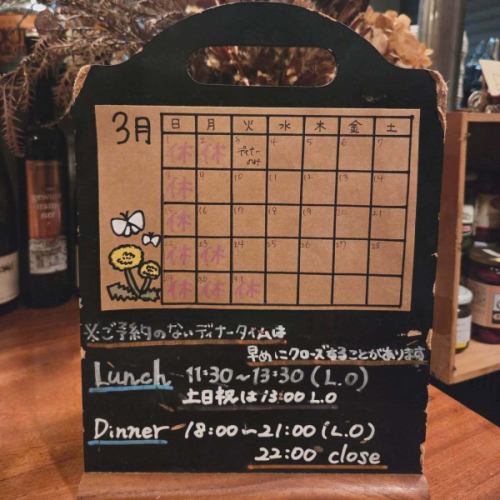 3月
日 月 火 水 木 金 土
1 休 2 休 3 ディナーのみ 4 5 6 7
8 休 9 10 11 12 13 14
15 休 16 17 18 19 20 21
22 休 23 休 24 25 26 27 28
29 休 30 休 31 休
※ご予約のないディナータイムは
早めにクローズすることがあります
Lunch 11:30～13:30 (L.O)
土日祝は13:00 L.O
Dinner 18:00～21:00 (L.O)
22:00 close